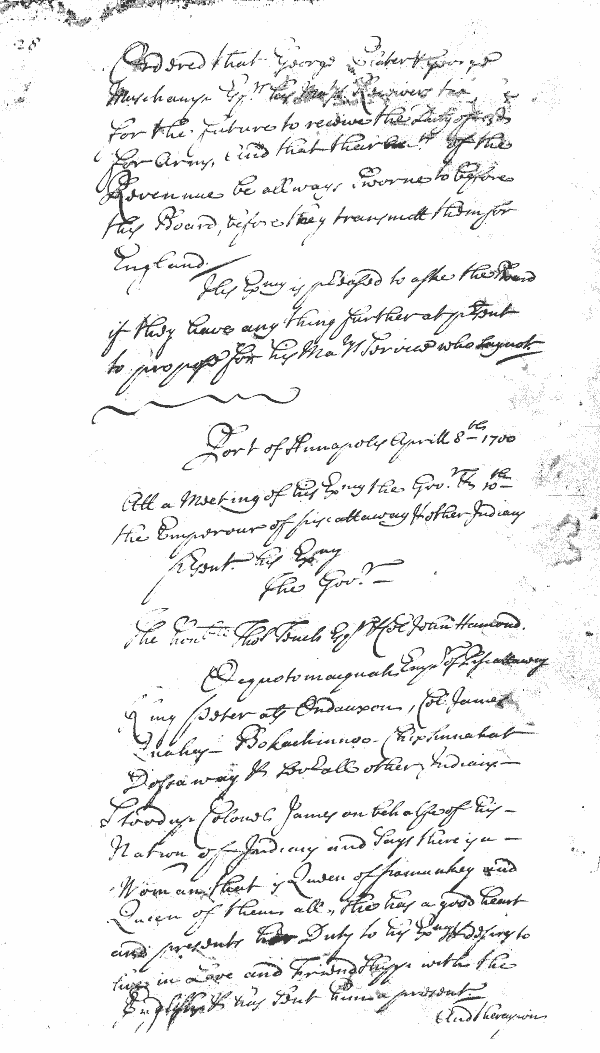 28
Ordered that George & George
Muschamp Esqrs his Majts Receivers
for the future to receive the Duty of
for Arms, And that their of the
Revennue be allways Sworne to before
this Board, before they transmitt them for
England.
His Exncy is pleased to aske the Board
if they have any thing further at psent
to propose for his Matys Service who say not
Port of Annapolis Aprill 8th 1700
Att a Meeting of his Exncy the Govr & 10th
the Emperour of Piscattaway & other Indians
psent his Exncy
The Govr
The Honble Thos Tench Esqr & Col John Hamond.
Ocquotomaquah Empr of Piscattaway
King Peter als , Col. James
Bokachinnoo
Dossaway & all other Indians
Stood up Colonel James on behalfe of his
Nation of Indians and Says there is a
Woman that is Queen of Pamunkey and
Queen of them all, She has a good heart
and presents her Duty to his Exncy & desires to
live in Love and Friendshipp with the
English & has Sent him a present
And thereupon